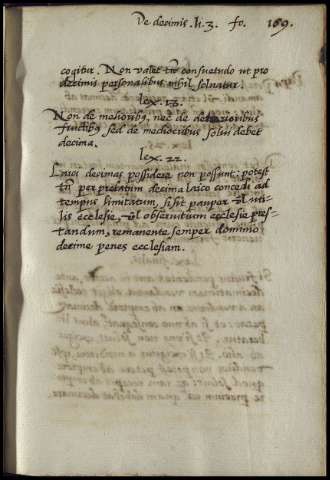 De decimis. li. 3. fo. 169.
cogitur. Non valet tñ consuetudo ut pro
decimis personalibus nihil solvatur.
lex. 13.
Non de melioribꝰ, nec de deterioribus
fructibꝰ sed de mediocribus solui debet
decima.
lex. 22.
Laici decimas possidere non possunt: potest
tñ per prelatum decima laico concedi ad
tempus limitatum, si sit pauper vl uti-
lis ecclesie, vl obsequium ecclesie pres-
tandum, remanente semper dominio
decime penes ecclesiam.